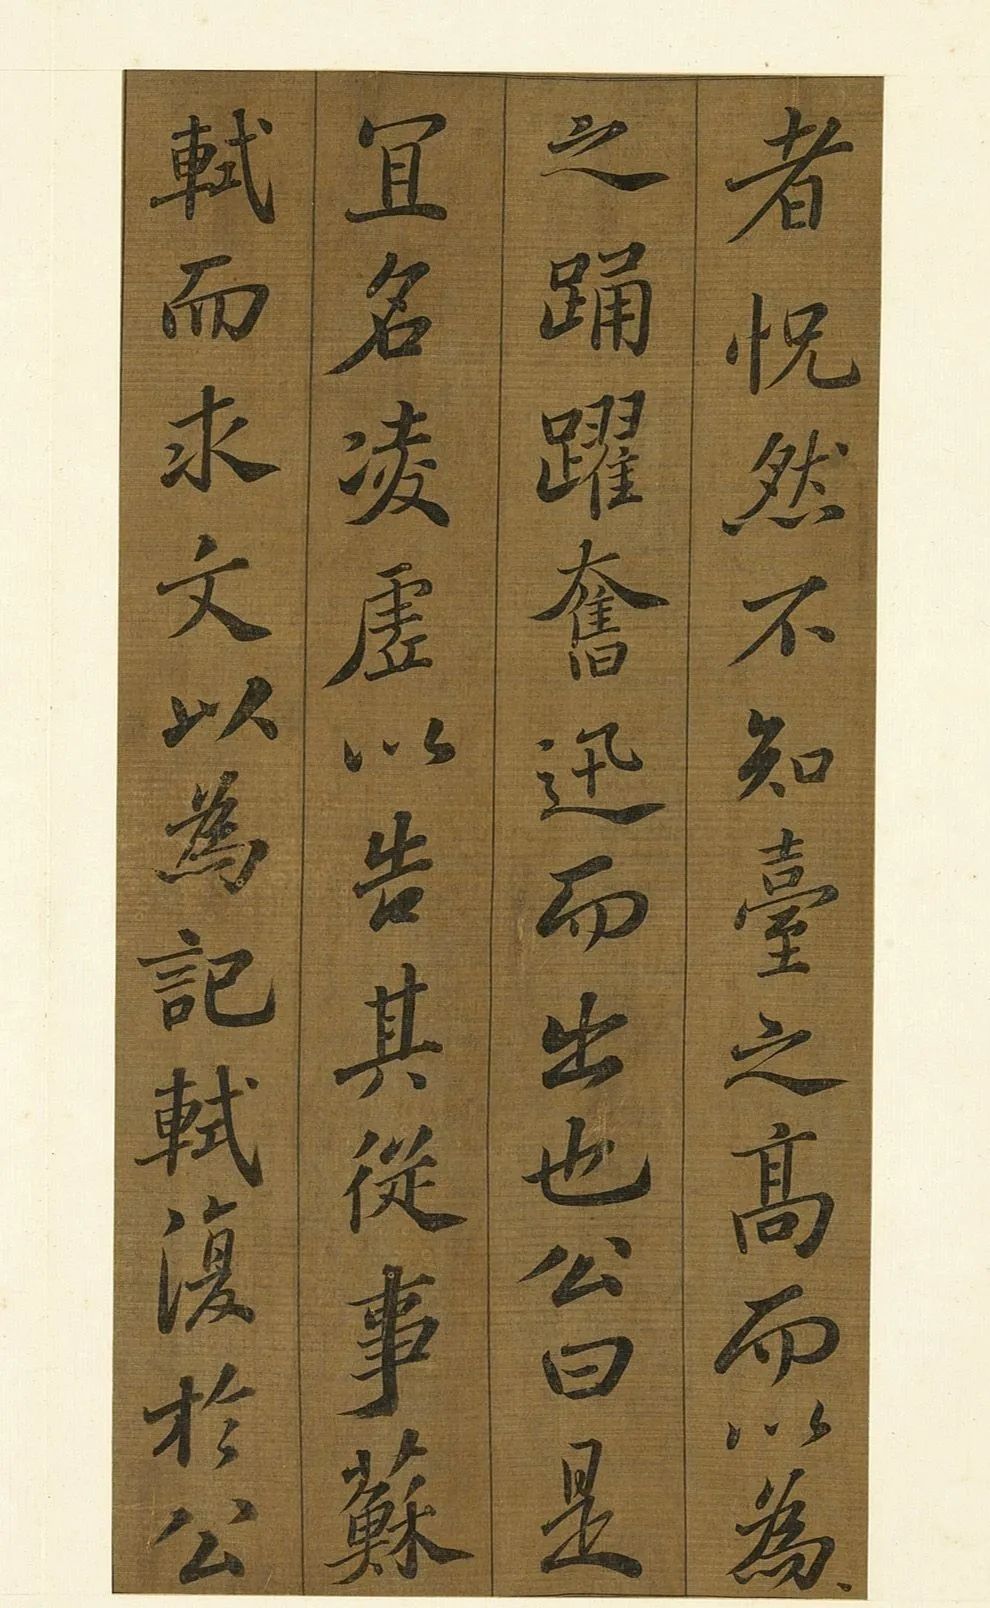 者怳然不知臺之高而以為
之踊躍奮迅而出也公曰是
宜名凌虛以告其從事蘇
軾而求文以為記軾復於公